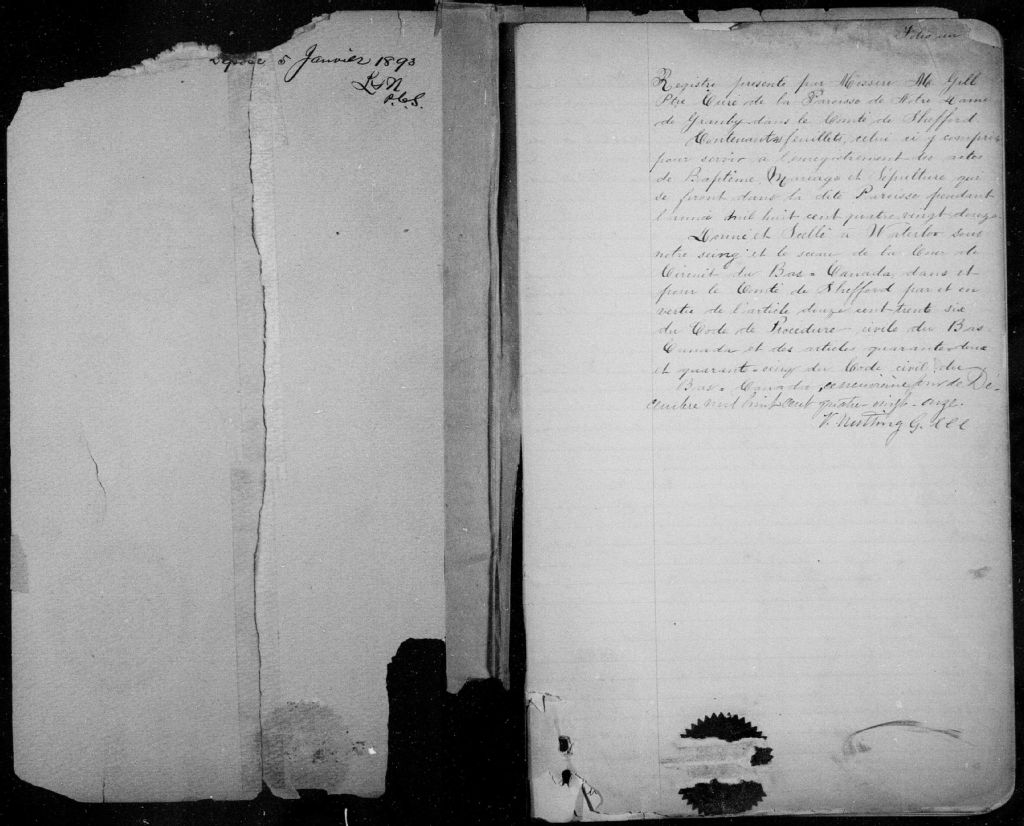 Déposé 5 Janvier 1893
L & N
P.C.S.
Folio un
Registre presente par Messire M Gill
Ptre Curé de la Paroisse de Notre Dame
de Granby dans le Comté de Shefford
Contenant feuillets, celui ci y compris
pour servir a l'enregistrement des actes
de Baptême, Mariage et Sépulture qui
se feront dans la dite Paroisse pendant
l'année mil huit cent quatre vingt douze
Donné et Scellé à Waterloo sous
notre seing et le sceau de la Cour de
Circuit du Bas-Canada, dans et
pour le Comté de Shefford par et en
vertu de l'article douze cent trente six
du Code de Procedure civile du Bas
Canada et des articles quarante deux
et quarante-cinq du Code civil du
Bas-Canada, ce neuvième jour de Dé-
cembre mil huit cent quatre-vingt-onze.
V. Nutting G. CCC